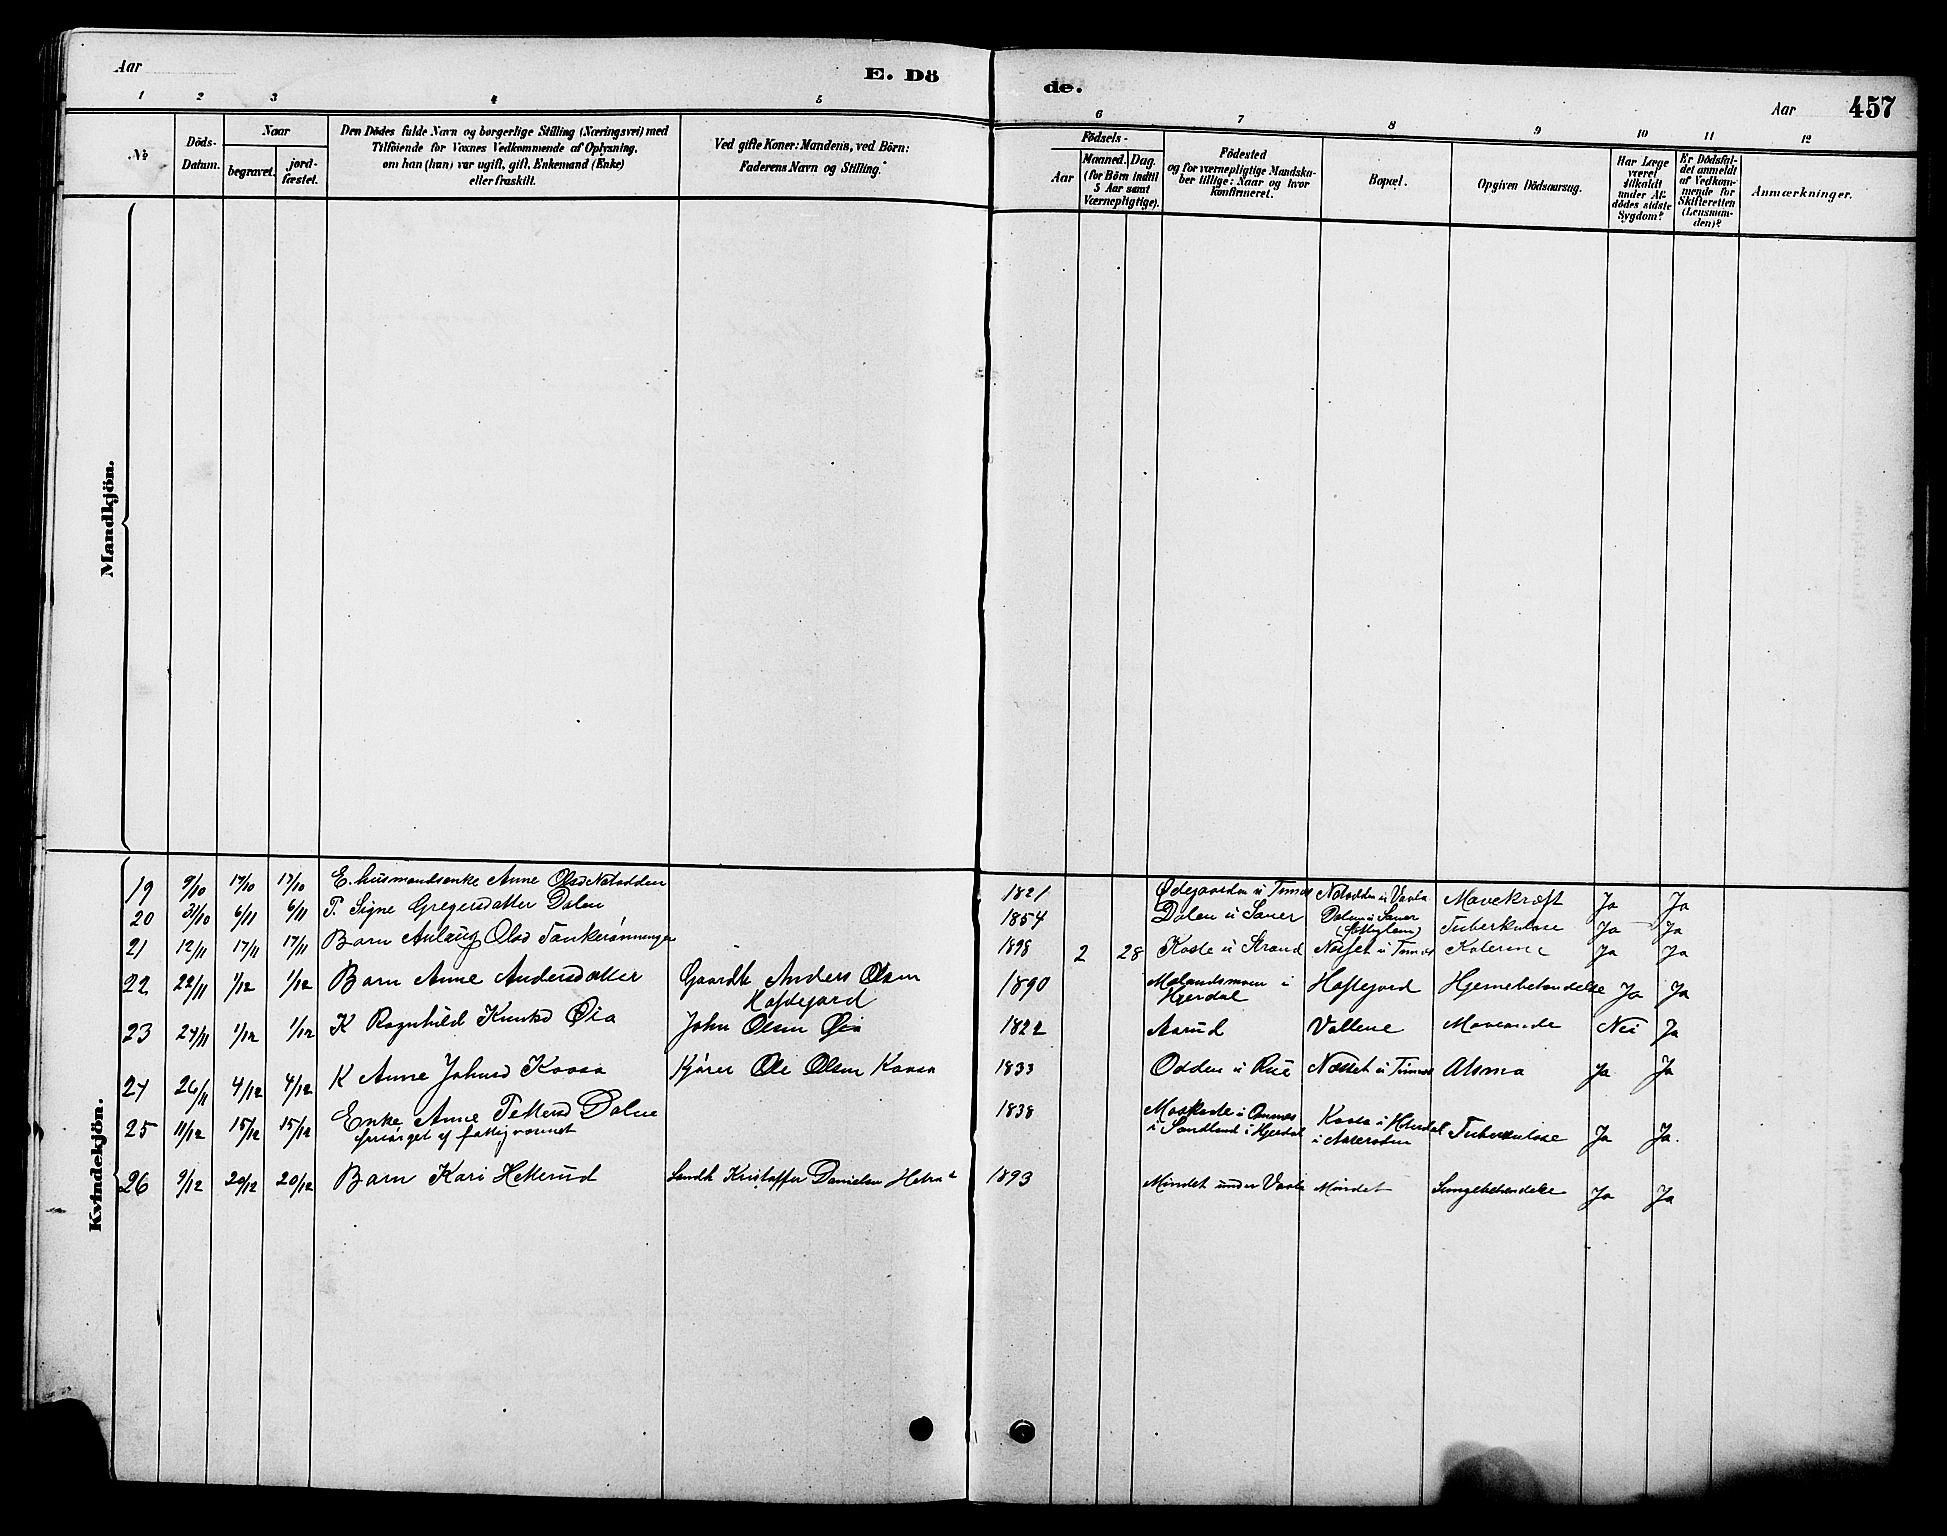 Aar
E. Dö
de.
Aar
457
1 2 3 4 5 6 7 8 9 10 11 12
№
Döds-
Datum.
Naar
begravet.
jord-
fæstet.
Den Dödes fulde Navn og borgerlige Stilling (Næringsvei) med
Tilföiende for Voxnes Vedkommende af Oplysning,
om han (hun) var ugift, gift, Enkemand (Enke)
eller fraskilt.
Ved gifte Koner: Mandens, ved Börn:
Faderens Navn og Stilling.
Födsels-
Aar
Maaned. Dag.
(for Börn indtil
5 Aar samt
Værnepligtige).
Födested
og for værnepligtige Mandska-
ber tillige: Naar og hvor
konfirmeret.
Bopæl.
Opgiven Dödsaarsag.
Har Læge
været
tilkaldt
under Af-
dödes sidste
Sygdom?
Er Dödsfal-
det anmeldt
af Vedkom-
mende for
Skifteretten
(Lensman-
den)?
Anmærkninger.
Mandkjön.
Kvindekjön.
19 9/10 17/10 17/10 E. husmandsenke Anne Olsd Notodden 1821 Ødegaarden u Tinnes Notodden u Vaala Mavekræft Ja Ja
20 31/10 6/11 6/11 P. Signe Gregersdatter Dalen 1854 Dalen u Sauer Dalen u Sauer Tuberkulose Ja Ja
21 12/11 17/11 17/11 Barn Aslaug Olsd 1898 2 28 Kaste u Strand Næsset u Tinnes Ja Ja
22 22/11 1/12 1/12 Barn Anne Andersdatter Gaardb Anders Olsen 1890 i Ja Ja
Hjerdal
23 24/11 1/12 1/12 K Ragnhild Knutsd Øia John Olsen Øia 1822 Aasrud Vallene Nei Ja
24 26/11 4/12 4/12 K Anne Johnsd Kaasa Kjører Ole Olsen Kaasa 1833 Odden u Rue Næsset u Tinnes Atsma Ja Ja
25 11/12 15/12 15/12 Enke Anne Pettersd Dalen 1838 Tuberkulose Ja Ja.
forsørget af fattigvæsenet i Sandland i Hjerdal
26 9/12 20/12 20/12 Barn Kari Hetterud Kristoffer Danielsen 1893 Mindet under Vaala Mindet Lungebetændelse Ja Ja